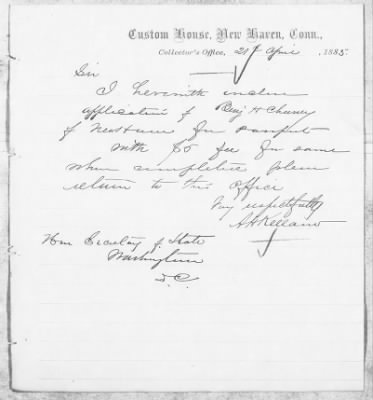 Custom House, New Haven, Conn.,
Collector's Office, 21st April, 1885
Sir
I herewith inclose
application of Benj H Cheney
of New Haven for passport
with $5 fee for same
when completed please
return to this office
Very respectfully
Hon Secretary of State
Washington
D.C.